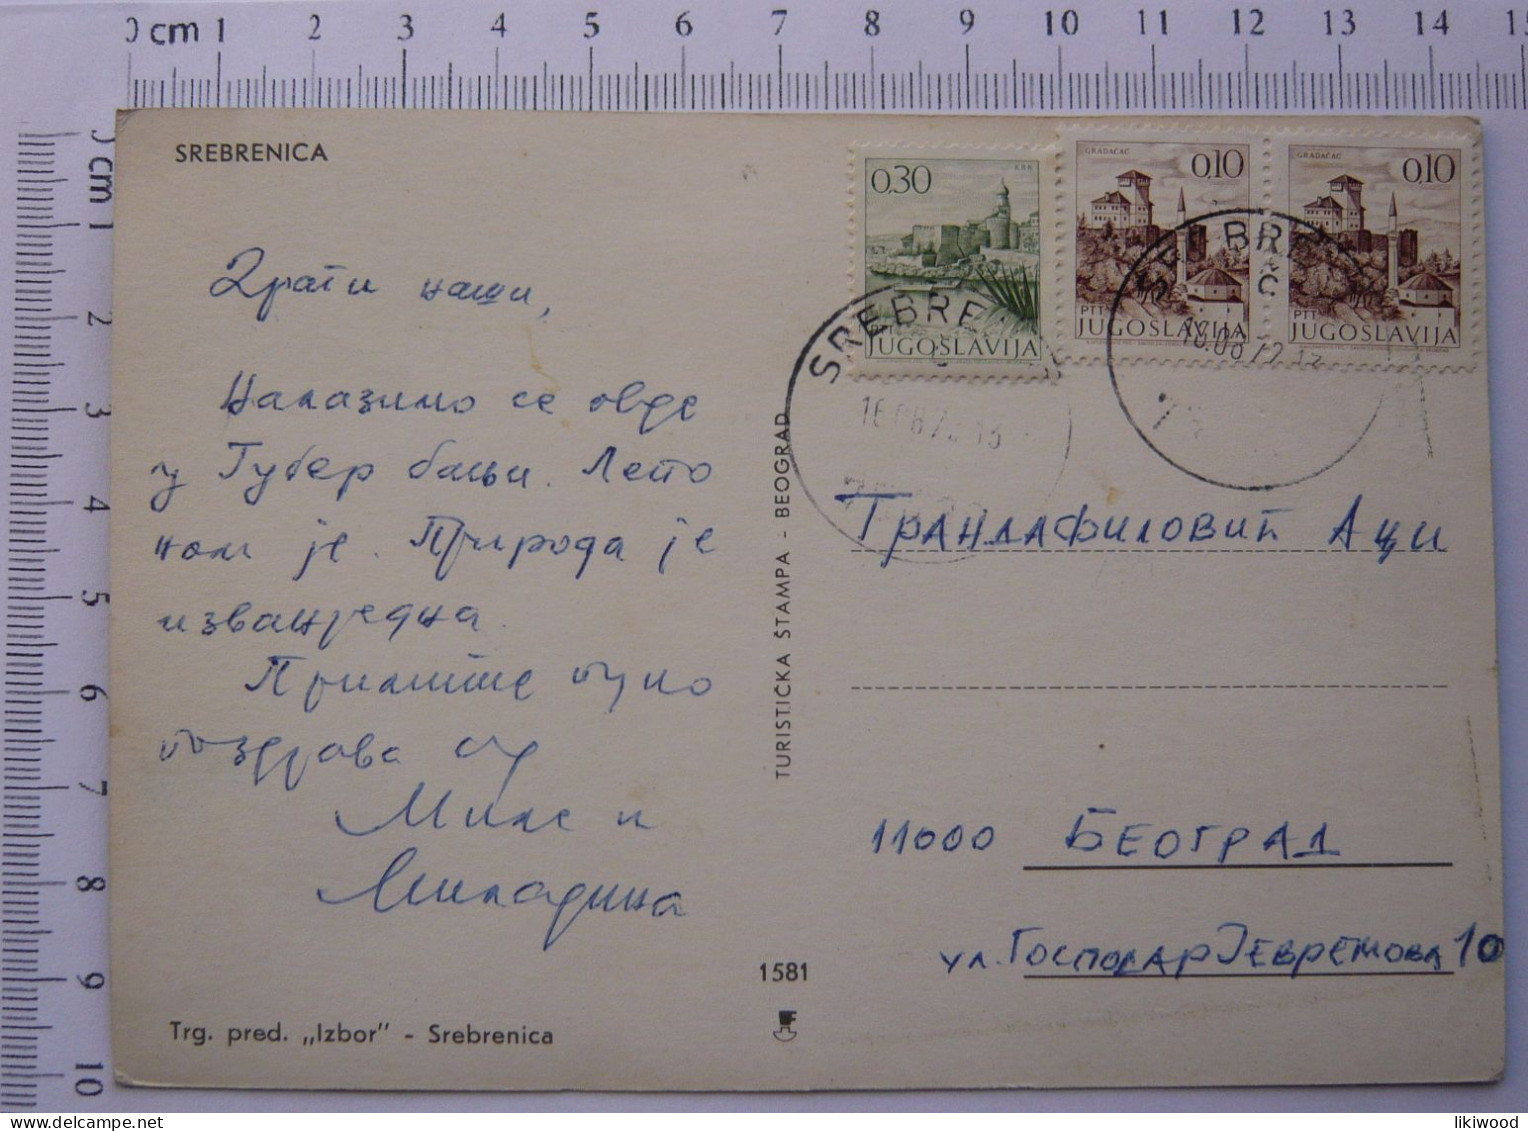 0 cm 1 2 3 4 5 6 7 8 9 10 11 12 13 14 15
cm 1 2 3 4 5 6 7 8 9 10
SREBRENICA
Драги наши,
Налазимо се овде
у Губер бањи. Лепо
нам је. Природа је
изванредна.
Примите пуно
поздрава од
Миле и
Миладина
Trg. pred. „Izbor" - Srebrenica
TURISTIČKA ŠTAMPA - BEOGRAD
1581
0,30
KRK
JUGOSLAVIJA
GRADAČAC
0,10
PTT
JUGOSLAVIJA
GRADAČAC
0,10
PTT
JUGOSLAVIJA
SREBRE
16.08.72.13
SREBRE
16.08.72.13
Трандафиловић Аци
11000 Београд
ул. Господар Јевремова 10
likiwood